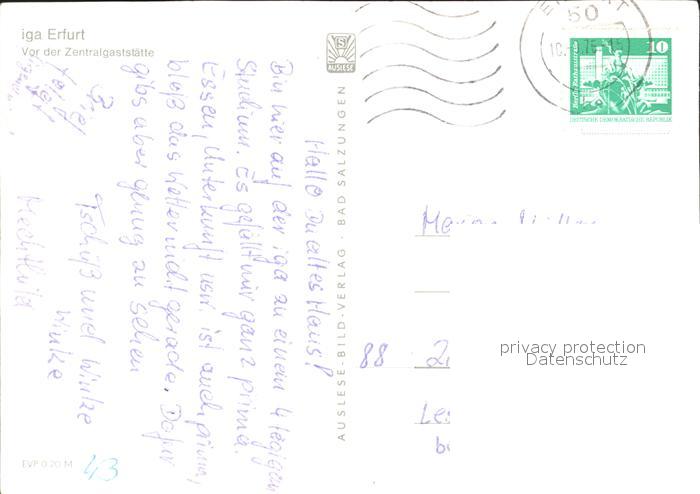 iga Erfurt
Vor der Zentralgaststätte
Hallo Du altes Haus!
Bin hier auf der iga zu einem 4tägigen
Studium. Es gefällt mir ganz prima.
Essen, Unterkunft usw. ist auch prima,
bloß das Wetter nicht gerade. Dafür
gibs aber genug zu sehen
Tschüß und Winke
Winke
Mechthild
AUSLESE-BILD-VERLAG · BAD SALZUNGEN
AUSLESE
50
10
DEUTSCHE DEMOKRATISCHE REPUBLIK
88
privacy protection
Datenschutz
EVP 0.20 M
43